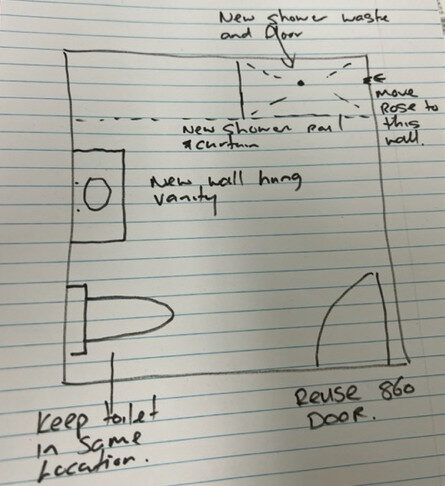 New shower waste
and
move
Rose to
this
wall.
New shower rail
+ curtain
New wall hung
vanity
Keep toilet
in same
Location.
Reuse 860
DOOR.